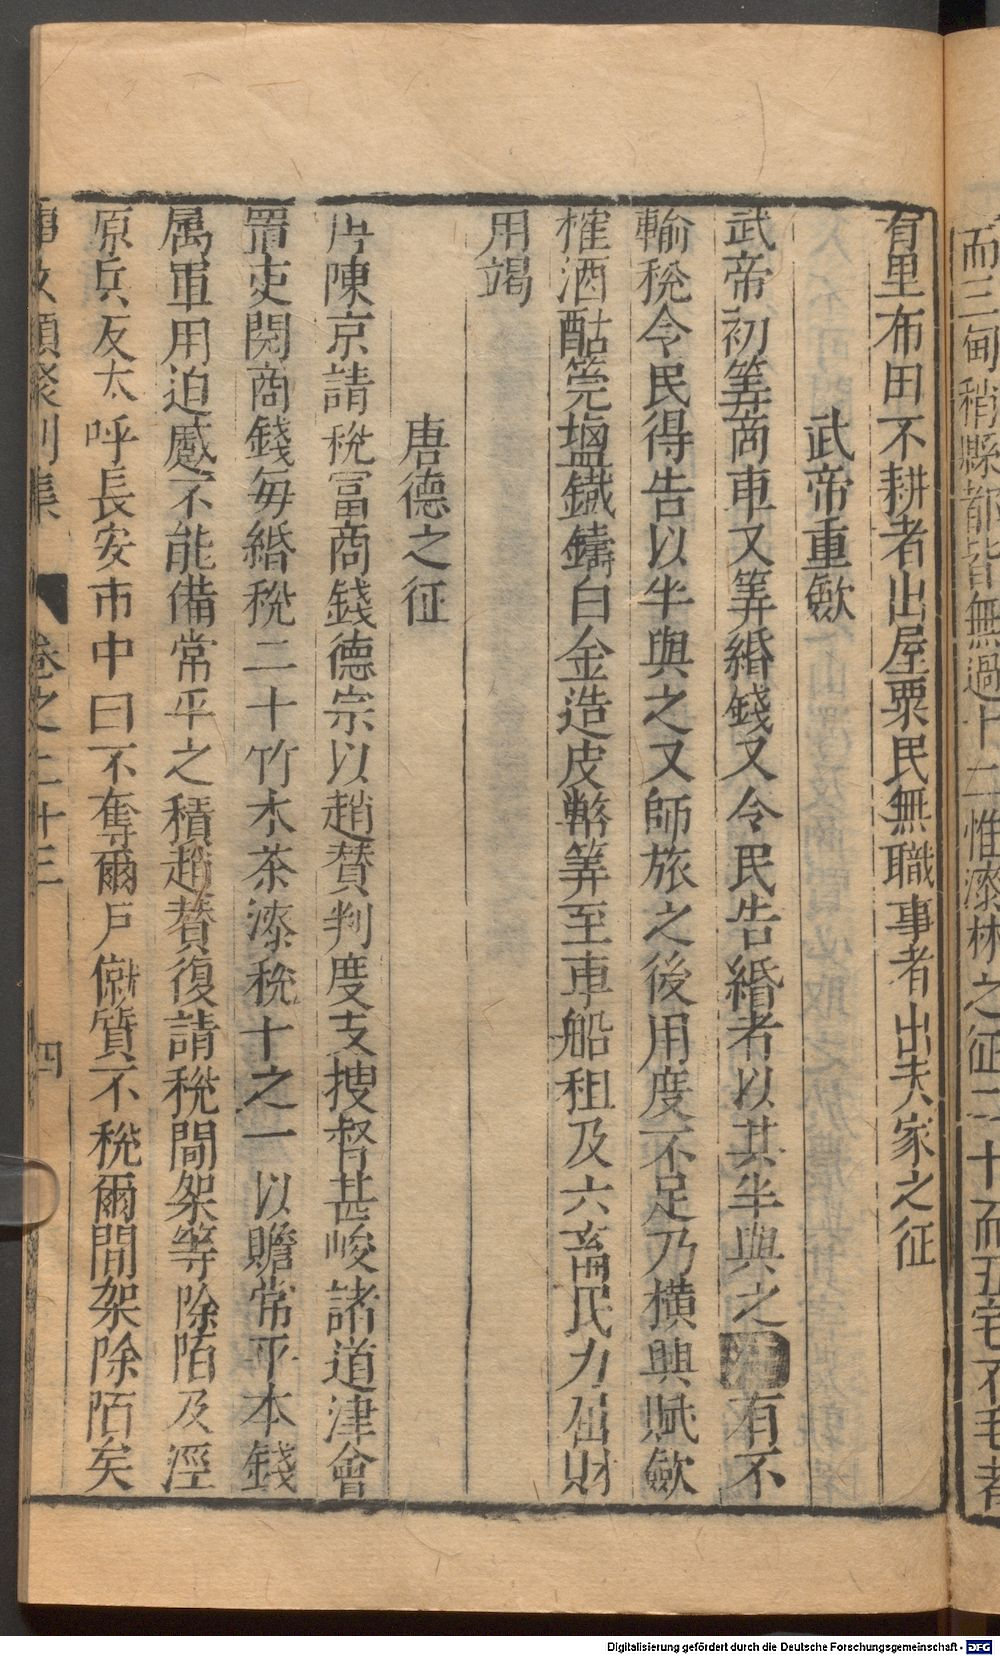 而三甸稍縣都皆無過十二惟漆林之征二十而五宅不毛者
有里布田不耕者出屋粟民無職事者出夫家之征
武帝重斂
武帝初筭商車又筭緡錢又令民告緡者以其半與之有不
輸稅令民得告以半與之又師旅之後用度不足乃橫興賦斂
榷酒酤筦塩鐡鑄白金造皮幣筭至車船租及六畜民力屈財
用竭
唐德之征
陳京請稅冨商錢德宗以趙賛判度支捜督甚峻諸道津會
置吏閱商錢每緡稅二十竹木茶漆稅十之一以贍常平本錢
属軍用迫蹙不能備常平之積趙賛復請稅間架等除陌及涇
原兵反大呼長安市中曰不奪爾戶僦質不稅爾間架除陌矣
事文類聚別集 卷之二十三 四
Digitalisierung gefördert durch die Deutsche Forschungsgemeinschaft - DFG